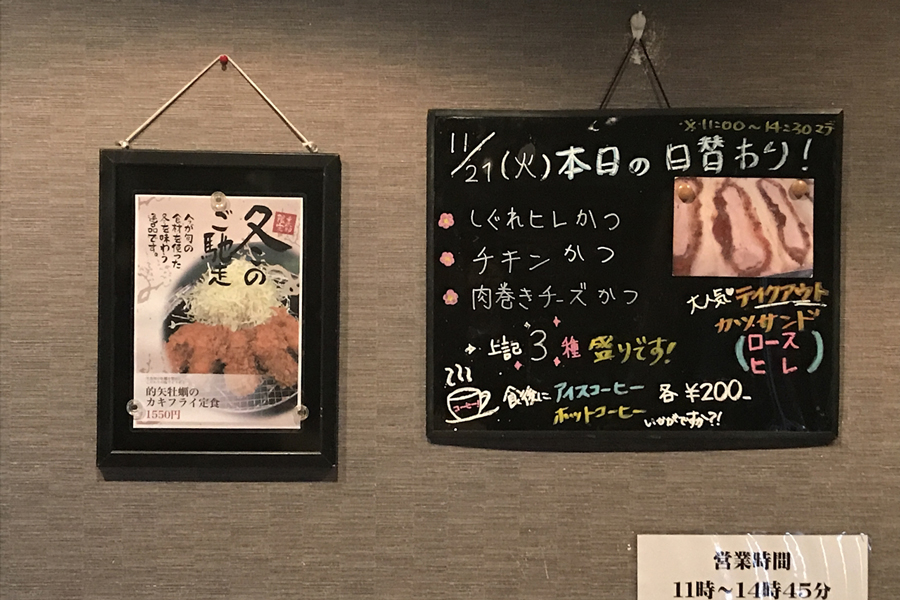 冬の
ご馳走
今が旬の
食材を使った
冬を味わう
逸品です。
的矢牡蠣の
カキフライ定食
1550円
※11:00～14:30まで
11/21(火)本日の日替わり!
しぐれヒレかつ
チキンかつ
肉巻きチーズかつ
上記3種盛りです!
大人気テイクアウト
カツサンド
(ロース
ヒレ)
コーヒー
食後にアイスコーヒー
ホットコーヒー
各¥200-
いかがですか?!
営業時間
11時～14時45分